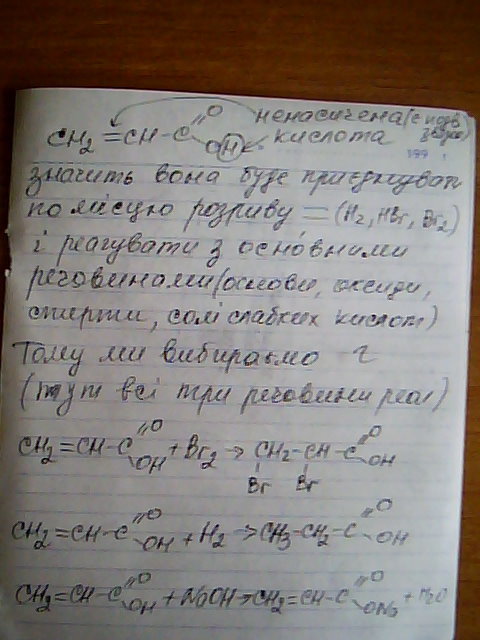 ненасичена (є подв.
CH2=CH-C=O OH кислота зв'язок)
значить вона буде приєднувати
по місцю розриву = (H2, HBr, Br2)
і реагувати з осно́вними
речовинами (основи, оксиди,
спирти, солі слабких кислот)
Тому ми вибираємо г
(тут всі три речовини реаг)
CH2=CH-C=O OH + Br2 → CH2-CH-C=O OH
Br Br
CH2=CH-C=O OH + H2 → CH3-CH2-C=O OH
CH2=CH-C=O OH + NaOH → CH2=CH-C=O ONa + H2O